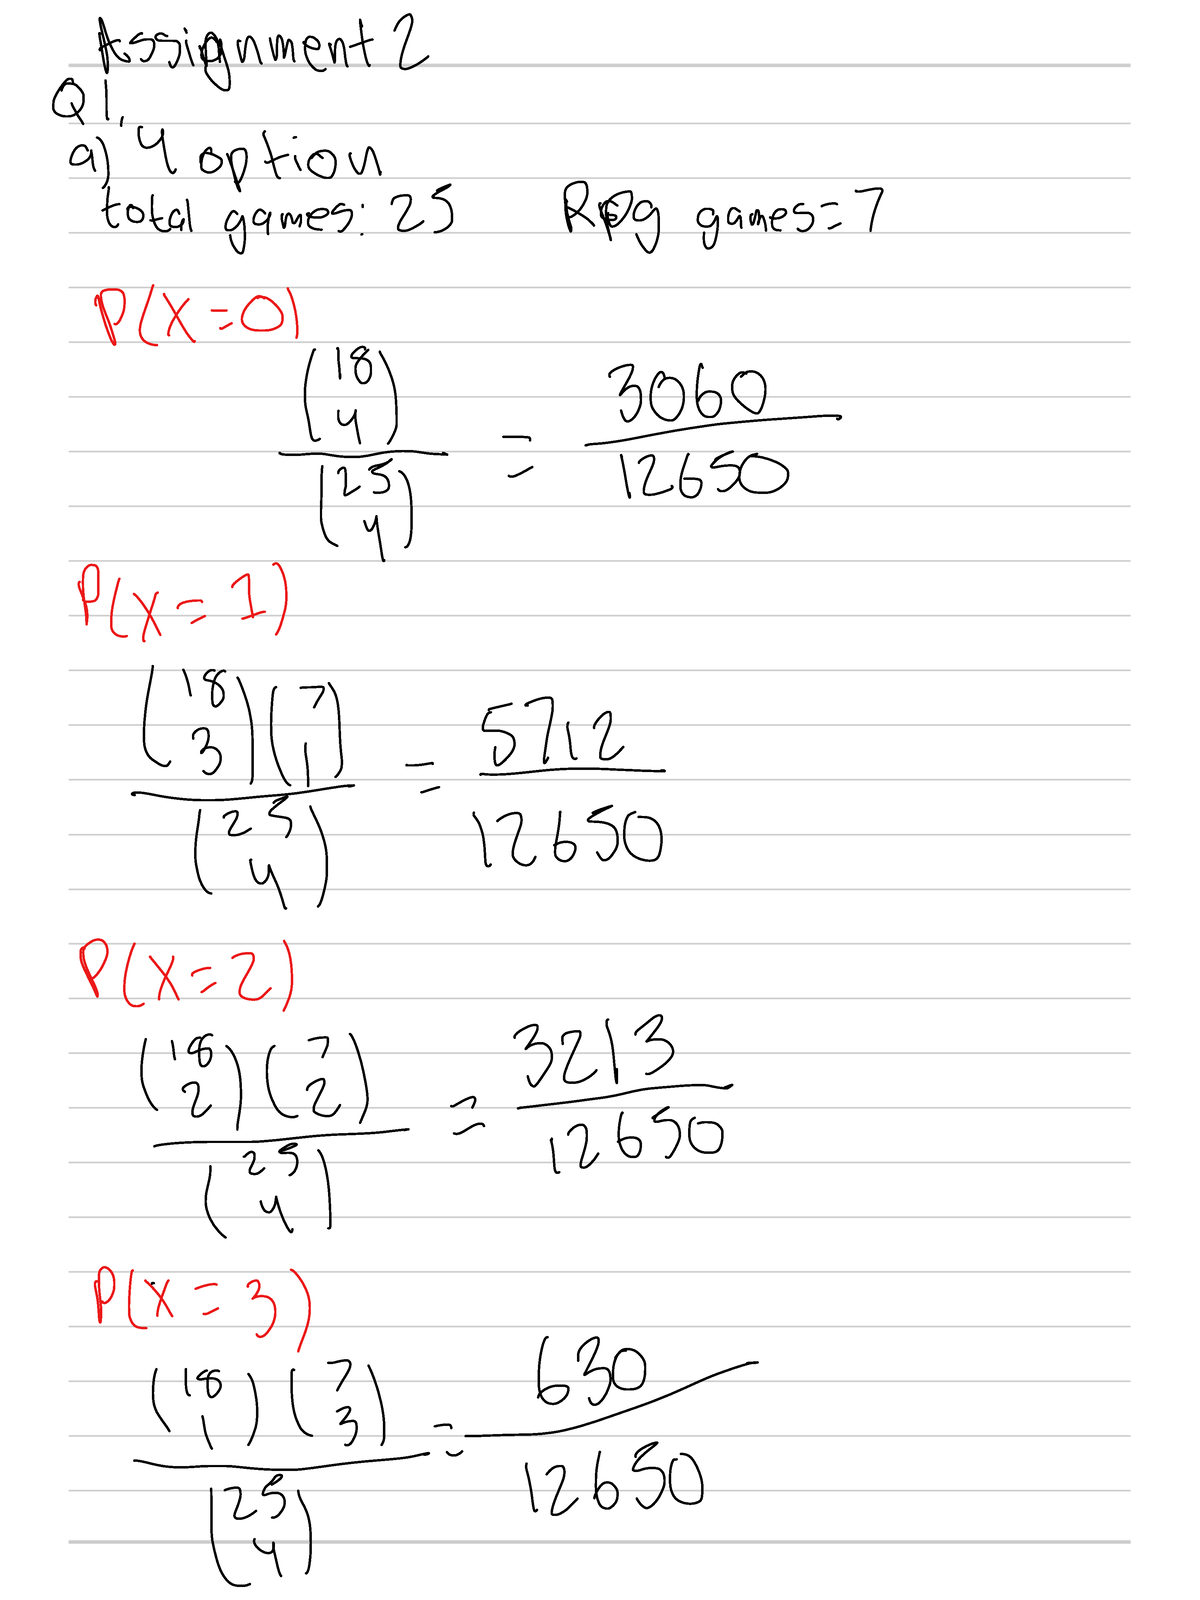 Assignment 2
Q1.
a) 4 option
total games: 25 Rpg games=7
P(X=0)
(18
4)
(25
4)
= 3060
12650
P(X=1)
(18
3)(7
1)
(25
4)
= 5712
12650
P(X=2)
(18
2)(7
2)
(25
4)
= 3213
12650
P(X=3)
(18
1)(7
3)
(25
4)
= 630
12650